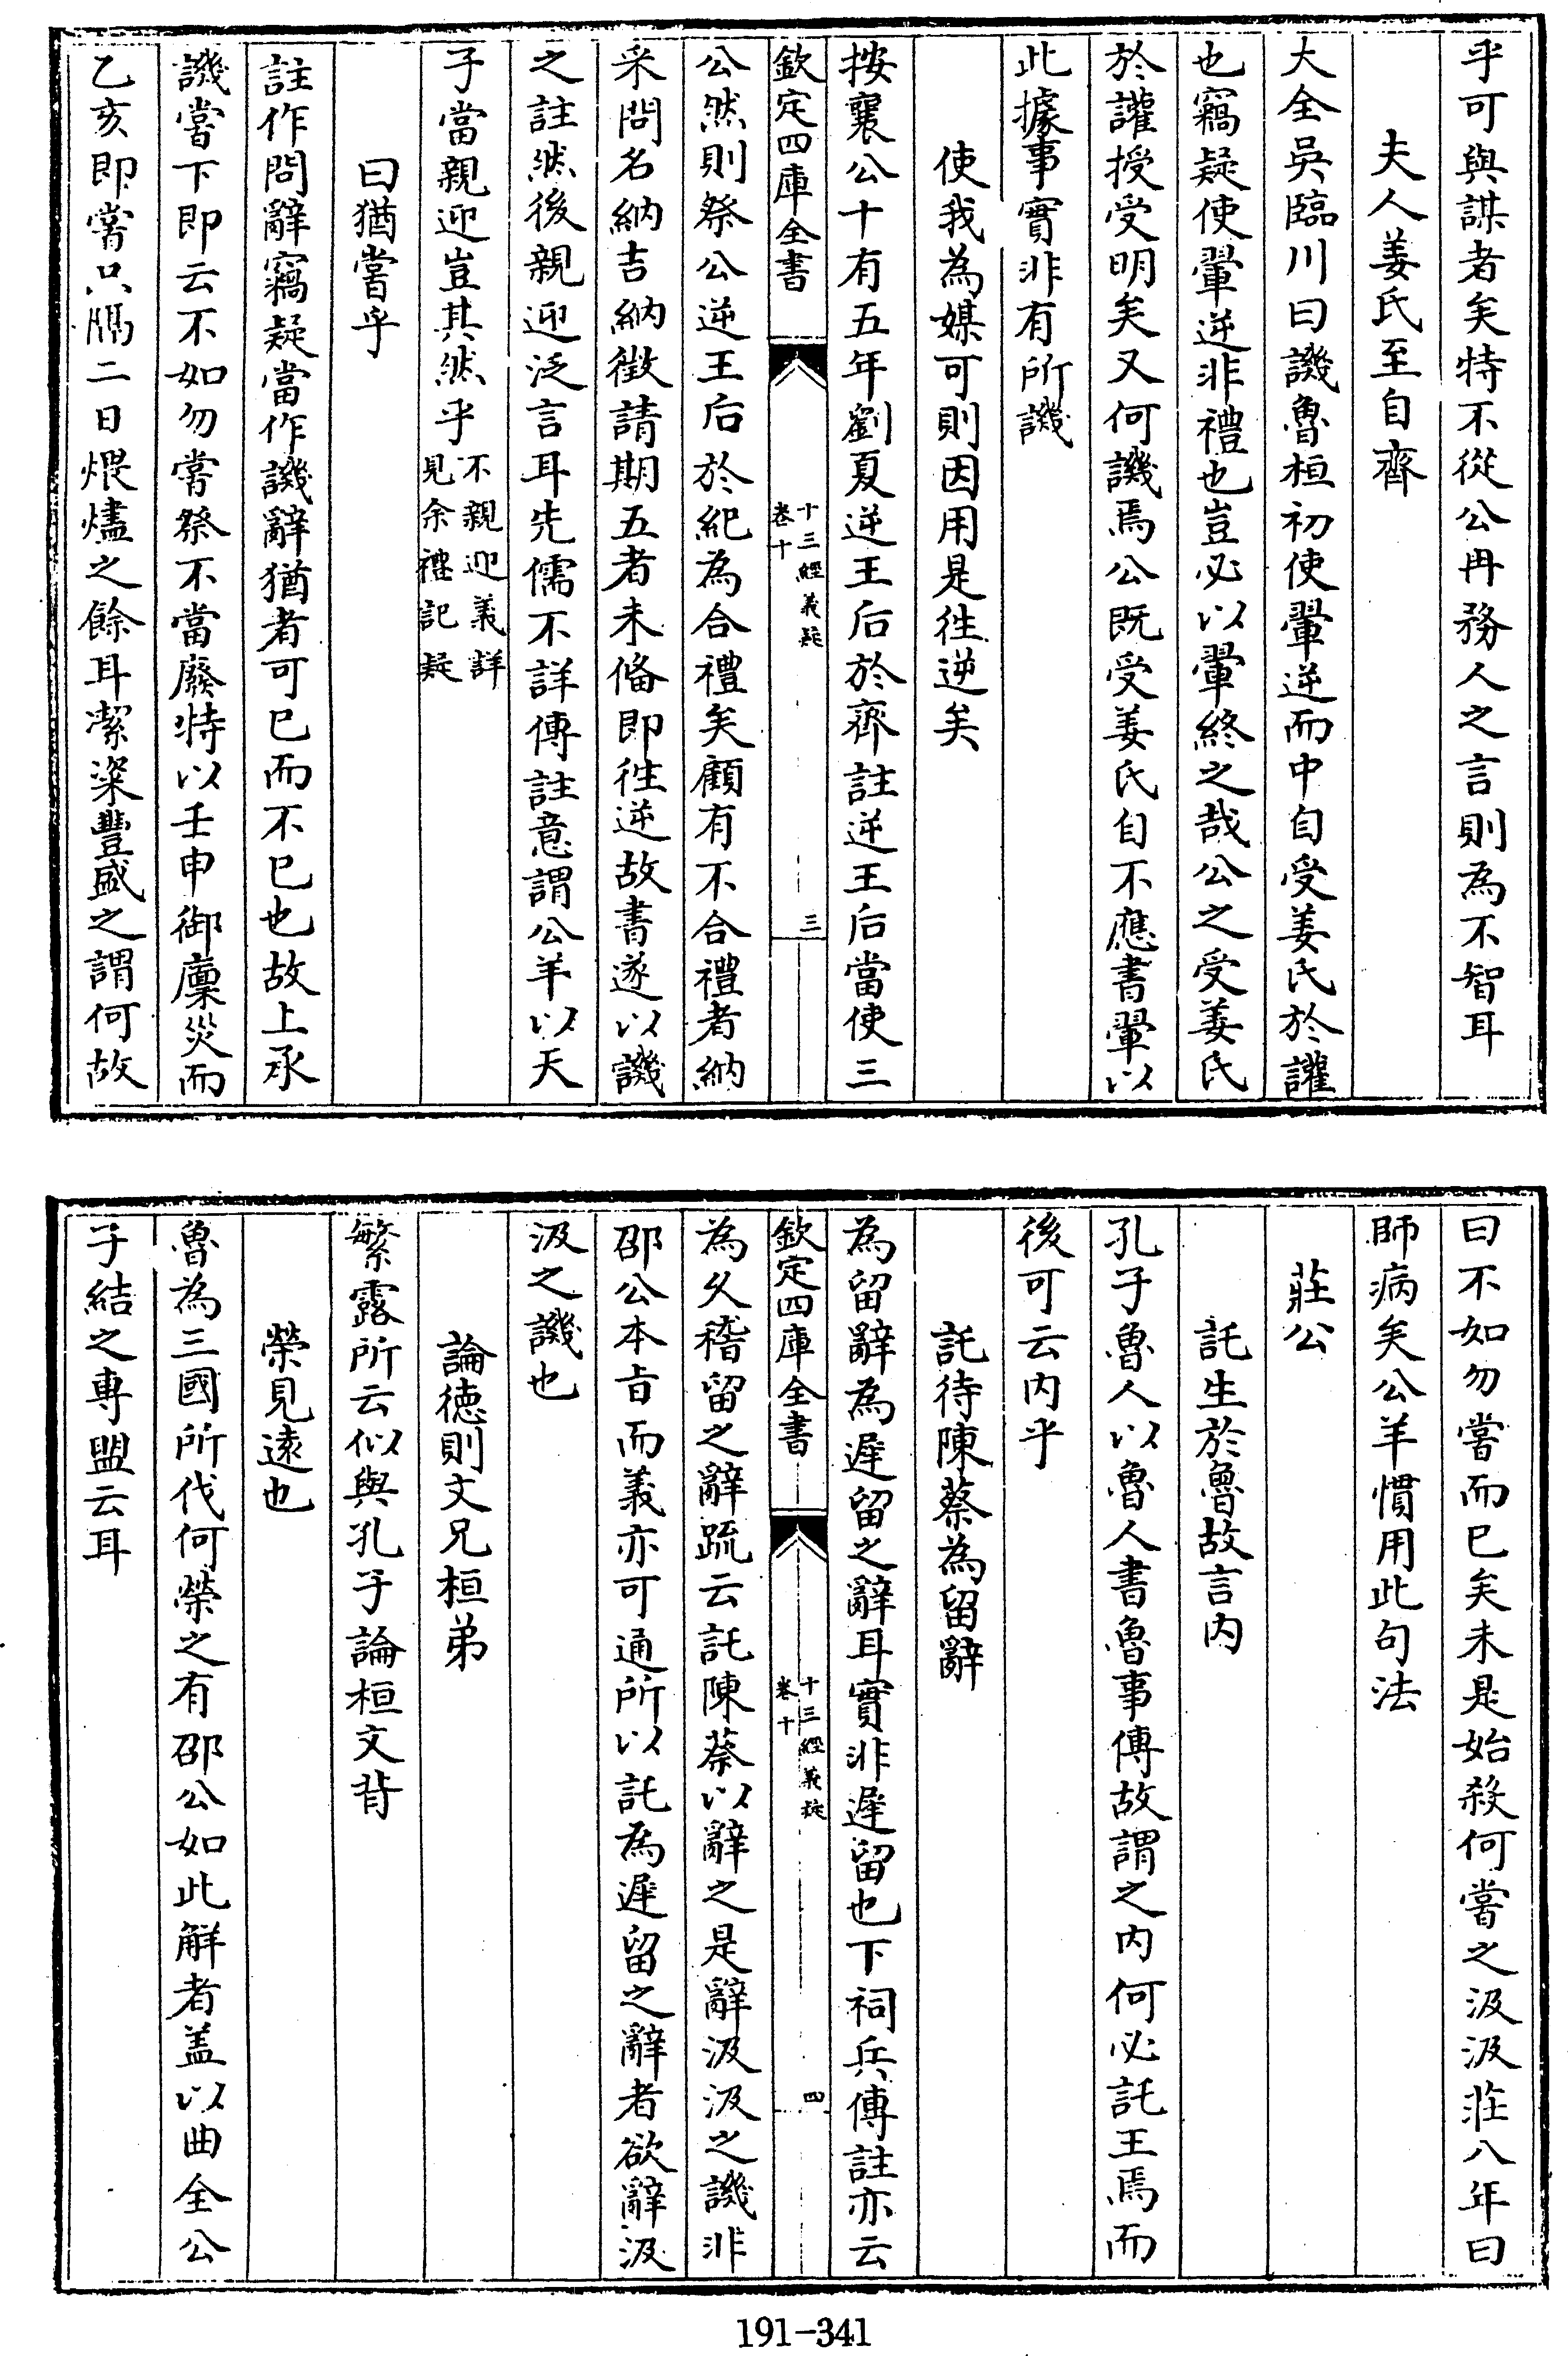 乎可與謀者矣特不從公冉務人之言則為不智耳
夫人姜氏至自齊
大全吳臨川曰譏魯桓初使翬逆而中自受姜氏於讙
也竊疑使翬逆非禮也豈必以翬終之哉公之受姜氏
於讙授受明矣又何譏焉公既受姜氏自不應書翬以
此據事實非有所譏
使我為媒可則因用是徃逆矣
按襄公十有五年劉夏逆王后於齊註逆王后當使三
欽定四庫全書
十三經義疑
卷十
三
公然則祭公逆王后於紀為合禮矣顧有不合禮者納
采問名納吉納徵請期五者未備即徃逆故書遂以譏
之註然後親迎泛言耳先儒不詳傳註意謂公羊以天
子當親迎豈其然乎不親迎義詳
見余禮記疑
曰猶嘗乎
註作問辭竊疑當作譏辭猶者可已而不已也故上承
譏嘗下即云不如勿嘗祭不當廢特以壬申御廩災而
乙亥即嘗只隔二日煨燼之餘耳潔粢豐盛之謂何故
曰不如勿嘗而已矣未是始殺何嘗之汲汲莊八年曰
師病矣公羊慣用此句法
莊公
託生於魯故言內
孔子魯人以魯人書魯事傳故謂之內何必託王焉而
後可云內乎
託待陳蔡為留辭
為留辭為遲留之辭耳實非遲留也下祠兵傳註亦云
欽定四庫全書
十三經義疑
卷十
四
為久稽留之辭疏云託陳蔡以辭之是辭汲汲之譏非
邵公本旨而義亦可通所以託為遲留之辭者欲辭汲
汲之譏也
論德則文兄桓弟
繁露所云似與孔子論桓文背
榮見遠也
魯為三國所伐何榮之有邵公如此解者盖以曲全公
子結之專盟云耳
191-341